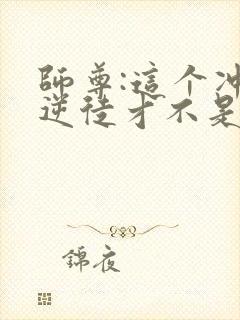 師尊:這个冲
逆徒才不是
錦夜